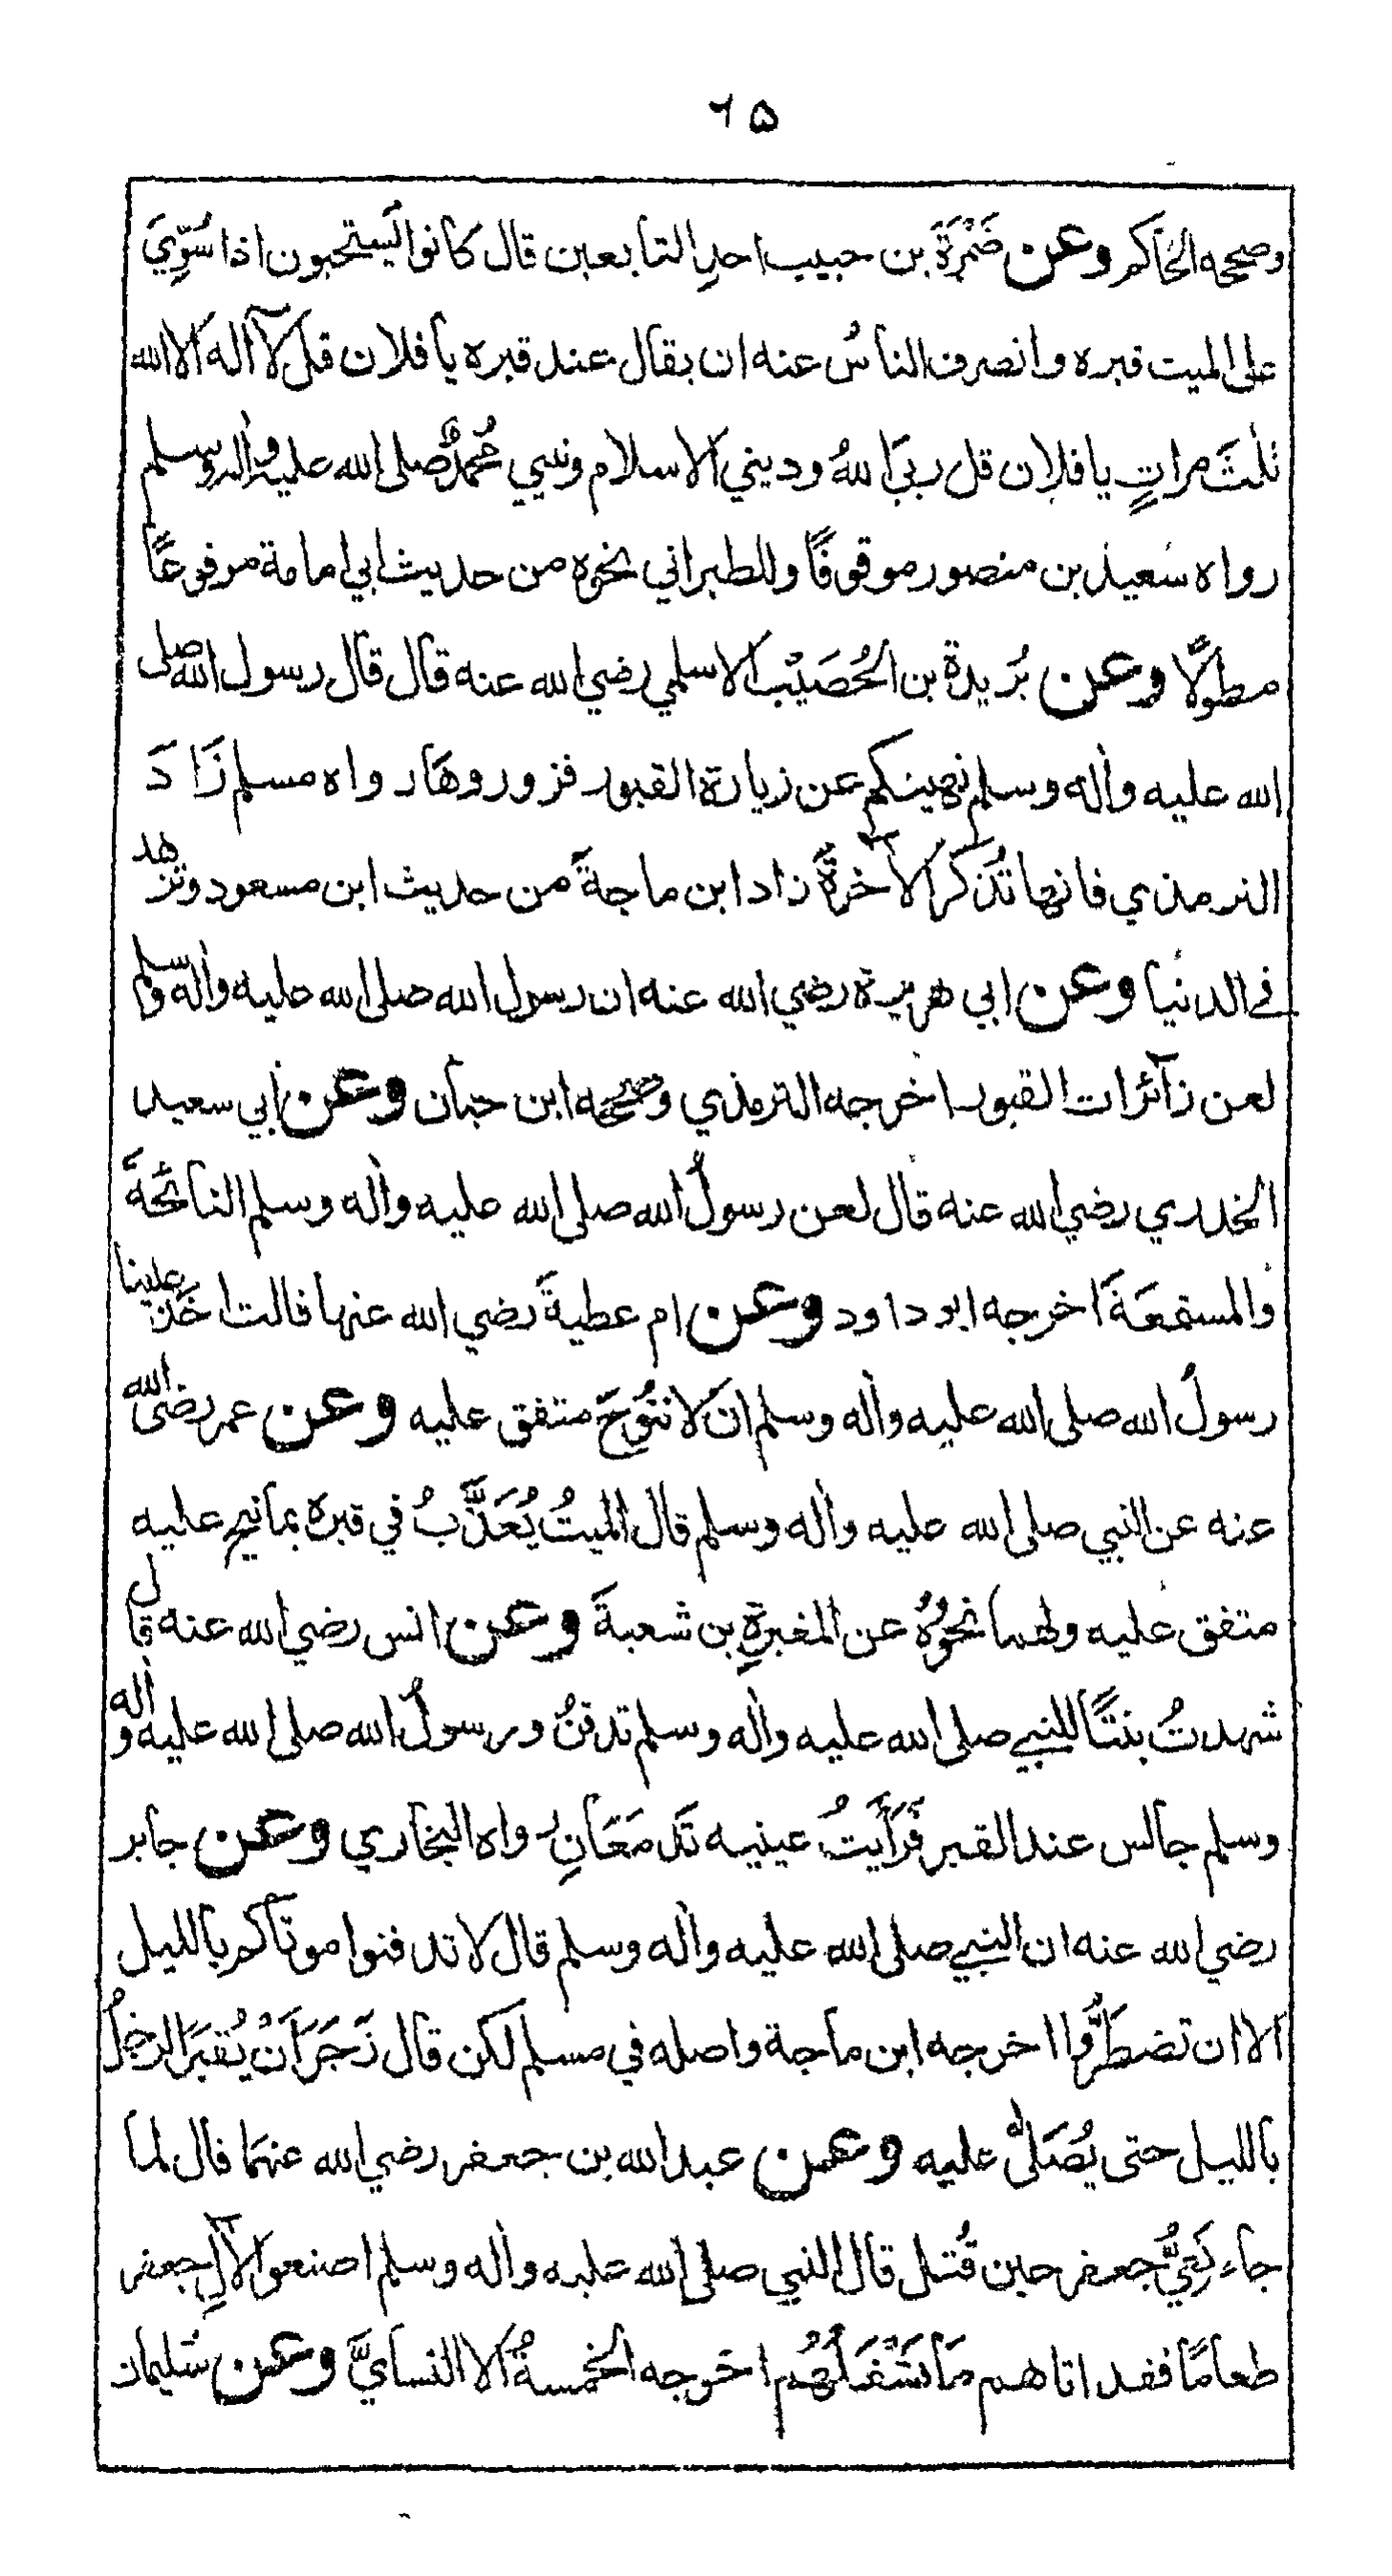 ٦٥
وصححه الحاكم وعن ضَمْرَةَ بن حبيب احدِ التابعين قال كانوا يَستحبون اذا سُوِّيَ
على الميت قبره وانصرف الناسُ عنه ان يقال عند قبره يا فلان قل لآ اله الا الله
ثلٰثَ مراتٍ يا فلان قل ربيَ اللهُ وديني الاسلام ونبيي مُحمدٌ صلى الله عليه واٰله وسلم
رواه سَعيد بن منصور موقوفًا وللطبراني نحوه من حديث ابي امامة مرفوعًا
مطولًا وعن بُريدة بن الحُصَيْب الاسلمي رضي الله عنه قال قال رسول الله صلى
الله عليه واٰله وسلم نهيتكم عن زيارة القبور فزوروها رواه مسلم زَادَ
الترمذي فانها تُذكر الآخرةَ زاد ابن ماجةَ من حديث ابن مسعود وتزهد
في الدنيا وعن ابي هريرة رضي الله عنه ان رسول الله صلى الله عليه واٰله وسلم
لعن زآئرات القبور اخرجه الترمذي وصححه ابن حبان وعن أبي سعيد
الخدري رضي الله عنه قال لعن رسولُ الله صلى الله عليه واٰله وسلم النائحةَ
والمستمعَةَ اخرجه ابو داود وعن ام عطيةَ رضي الله عنها قالت اخَذ علينا
رسولُ الله صلى الله عليه واٰله وسلم ان لا ننُوحَ متفق عليه وعن عمر رضى الله
عنه عن النبي صلى الله عليه واٰله وسلم قال الميتُ يُعَذَّبُ في قبره بما نيح عليه
متفق عليه ولهما نحوُهُ عن المغيرةِ بن شعبةَ وعن انس رضي الله عنه قال
شهدتُ بنتًا للنبي صلى الله عليه واٰله وسلم تدفنُ ورسولُ الله صلى الله عليه واٰله
وسلم جالس عند القبر فرَأَيتُ عينيه تَدمَعَانِ رواه البخاري وعن جابر
رضي الله عنه ان النبي صلى الله عليه واٰله وسلم قال لا تدفنوا موتاكم بالليل
الا ان تضطَرُّوا اخرجه ابن ماجة واصله في مسلم لكن قال زَجَرَ اَنْ يُقبَرَ الرجلُ
بالليل حتى يُصَلّٰى عليه وعن عبد الله بن جعفر رضي الله عنهما قال لما
جاء نَعِيُّ جعفر حين قُتل قال النبي صلى الله عليه واٰله وسلم اصنعوا لآلِ جعفر
طعامًا فقد اتاهم مَا يَشْغَلُهُم اخرجه الخمسةُ الا النسايَّ وعن سُليمان